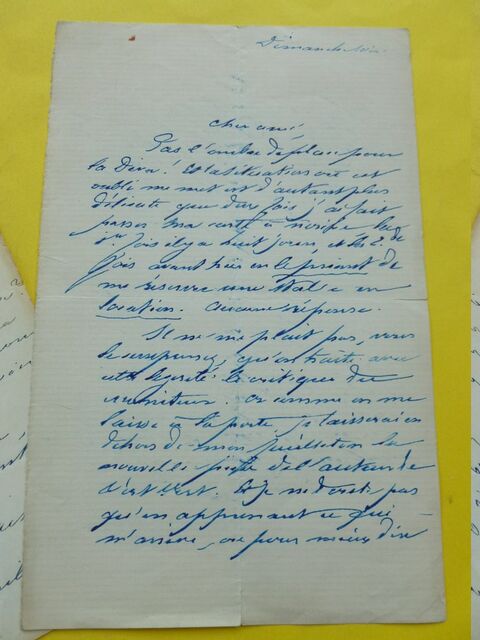 Dimanche soir
Cher ami
Pas l'ombre de place pour
la Diva! Et la situation où cet
oubli me met est d'autant plus
délicate que deux fois j'ai fait
passer ma carte à la
1re fois il y a huit jours, et la 2e
fois avant hier en le priant de
me réserver une stalle en
location. Aucune réponse.
Il ne me plait pas, vous
le comprenez, qu'on traite avec
cette légèreté le critique du
Moniteur. Or comme on me
laisse à la porte, je laisserai en
dehors de mon feuilleton la
nouvelle pièce de l'auteur de
Et je ne doute pas
qu'en apprenant ce qui
m'arrive, ou pour mieux dire